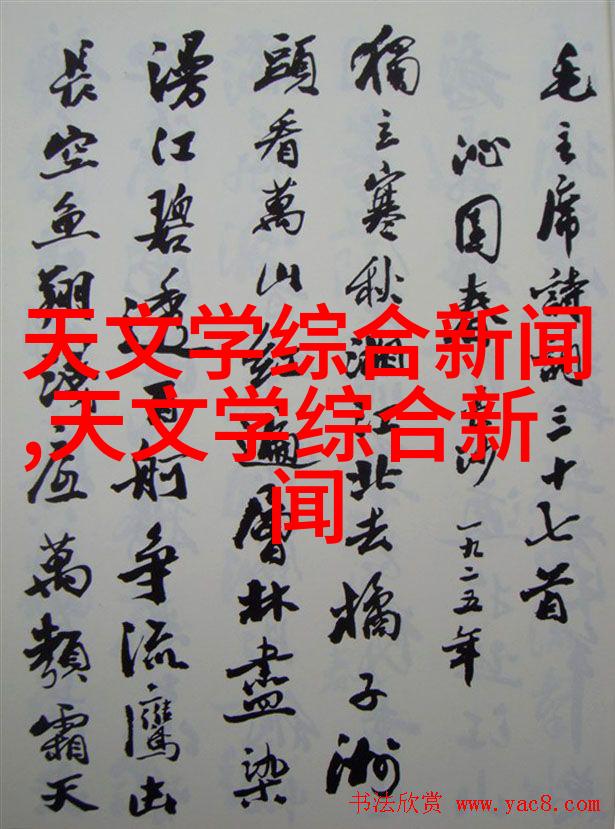 毛主席詩詞三十七首
沁园春 長沙 一九二五年
獨立寒秋湘江北去橘子洲
頭看萬山红遍層林盡染
漫江碧透百舸争流鷹击
長空鱼翔淺底萬類霜天
天文学综合新闻
,天文学综合新
闻
书法欣赏 www.yac8.com